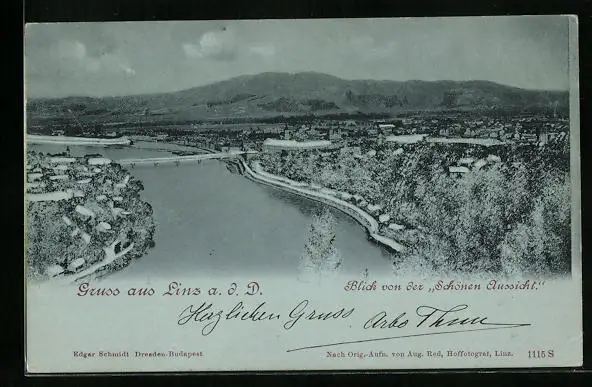 Gruss aus Linz a. d. D. Blick von der „Schönen Aussicht."
Herzlichen Gruss
Edgar Schmidt Dresden-Budapest. Nach Orig.-Aufn. von Aug. Red, Hoffotograf, Linz. 1115 S